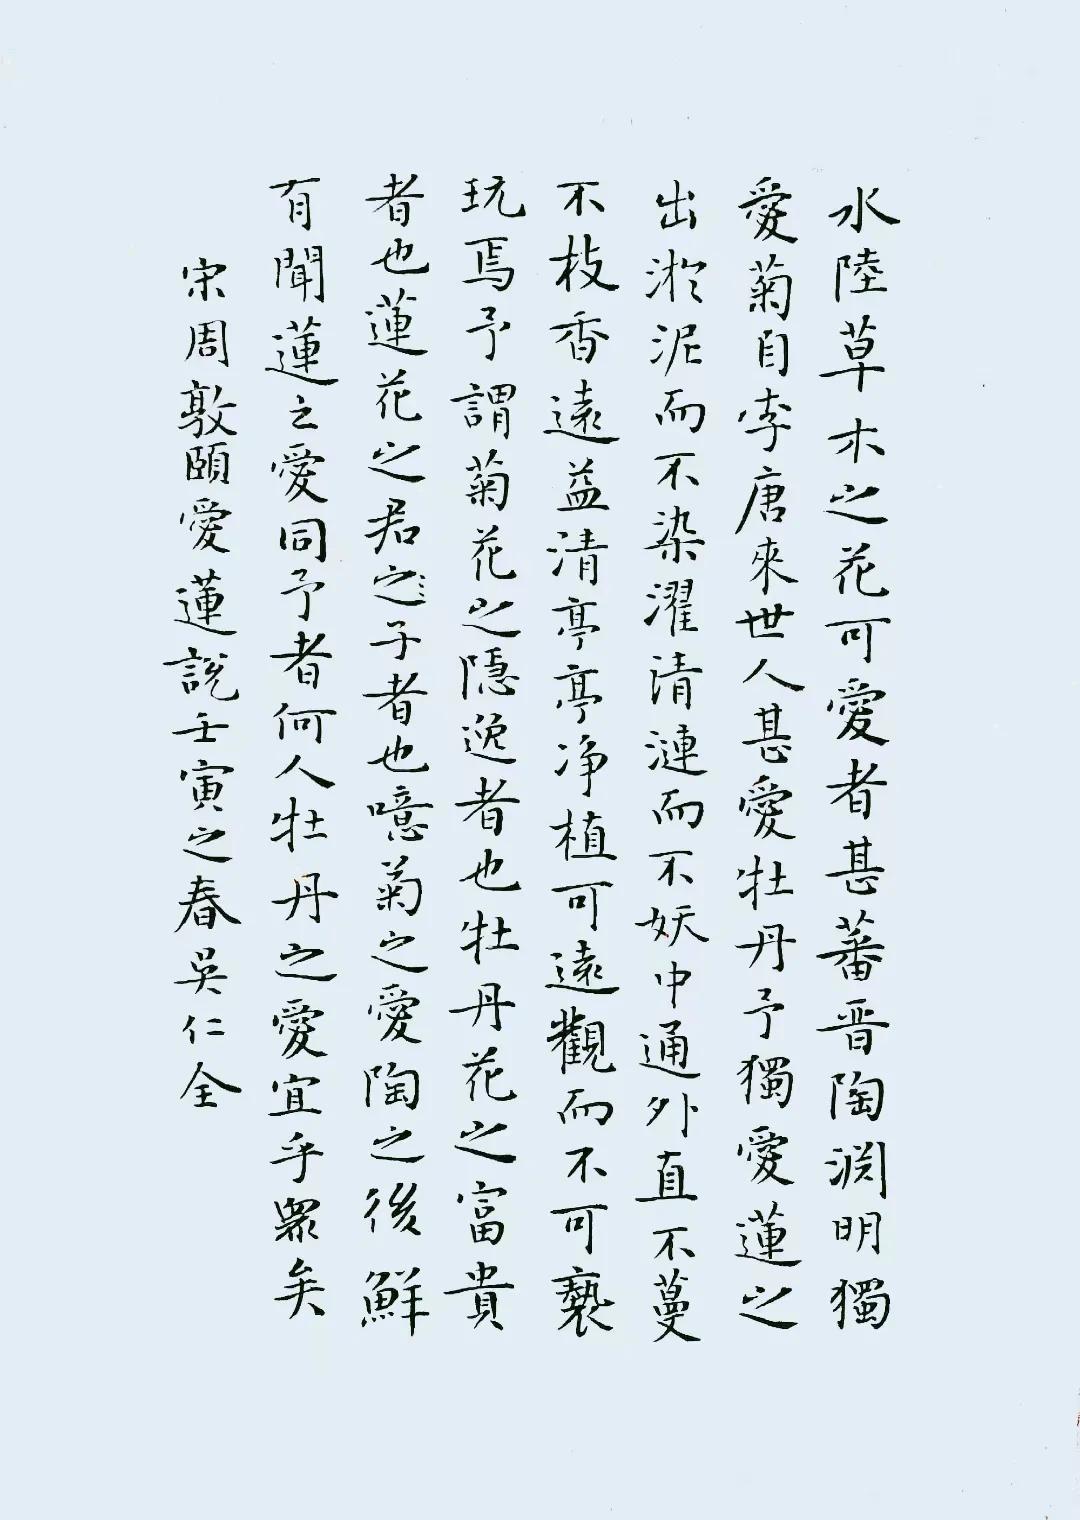 水陸草木之花可愛者甚蕃晋陶渊明獨
愛菊自李唐來世人甚愛牡丹予獨愛蓮之
出淤泥而不染濯清漣而不妖中通外直不蔓
不枝香遠益清亭亭净植可遠觀而不可褻
玩焉予謂菊花之隱逸者也牡丹花之富貴
者也蓮花之君之子者也噫菊之愛陶之後鮮
有聞蓮之愛同予者何人牡丹之愛宜乎眾矣
宋周敦頤愛蓮說壬寅之春吳仁全